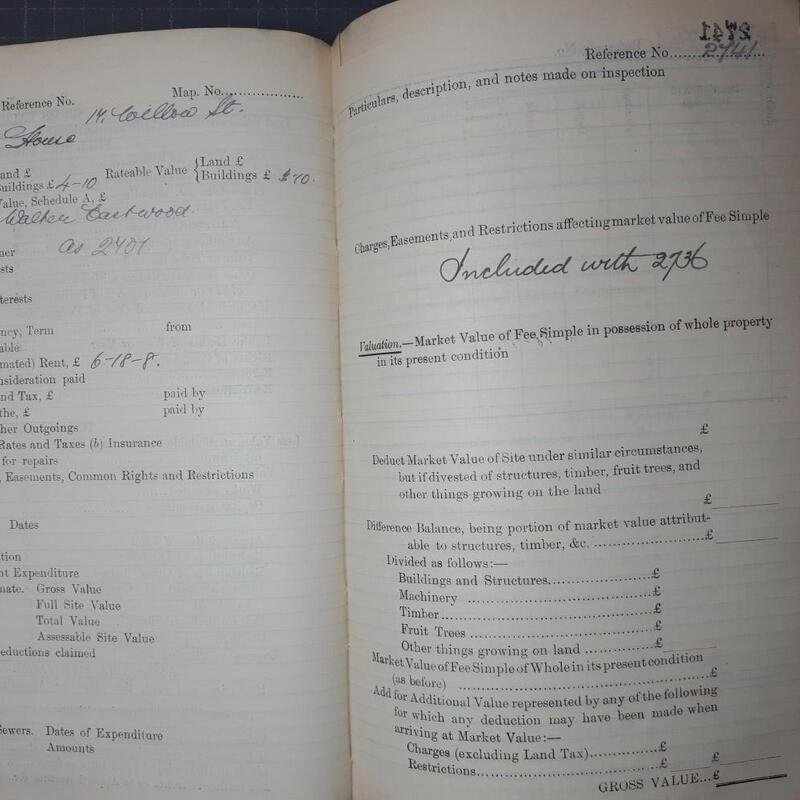 Reference No.
Map. No.
14, Willow St.
House
Land £
Buildings £ 4-10
Rateable Value
Land £
Buildings £
Value, Schedule A, £
Walker Eastwood.
as 2401
from
Rent, £ 6-18-8.
paid
nd Tax, £ paid by
the, £ paid by
her Outgoings
Rates and Taxes (b) Insurance
for repairs
, Easements, Common Rights and Restrictions
Dates
Expenditure
Gross Value
Full Site Value
Total Value
Assessable Site Value
eductions claimed
Sewers. Dates of Expenditure
Amounts
2741
Reference No. 2741
Particulars, description, and notes made on inspection
Charges, Easements, and Restrictions affecting market value of Fee Simple
Included with 2736
Valuation.—Market Value of Fee Simple in possession of whole property
in its present condition
£
Deduct Market Value of Site under similar circumstances,
but if divested of structures, timber, fruit trees, and
other things growing on the land
£
Difference Balance, being portion of market value attribut-
able to structures, timber, &c. £
Divided as follows:—
Buildings and Structures £
Machinery £
Timber £
Fruit Trees £
Other things growing on land £
Market Value of Fee Simple of Whole in its present condition
(as before) £
Add for Additional Value represented by any of the following
for which any deduction may have been made when
arriving at Market Value:—
Charges (excluding Land Tax) £
Restrictions £ £
GROSS VALUE... £